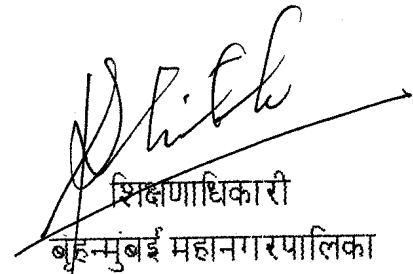 शिक्षणाधिकारी
बृहन्मुंबई महानगरपालिका